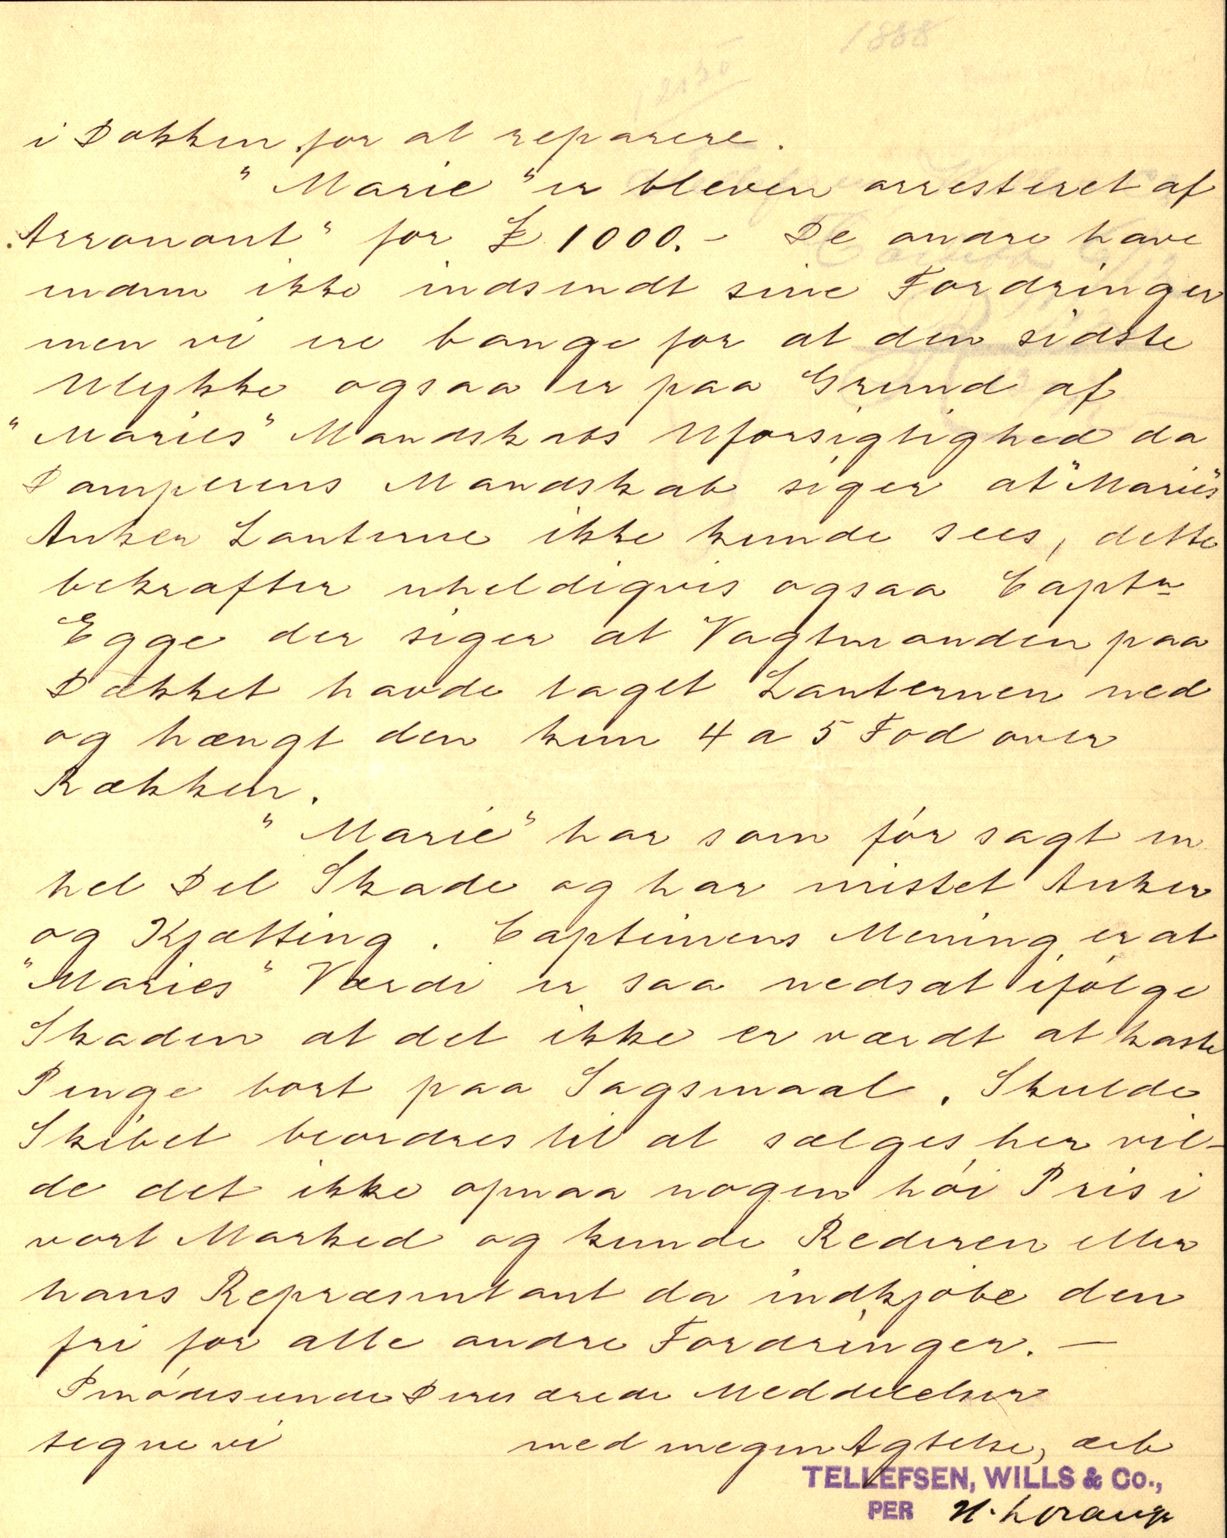 1888
i Dokken for at reparere.
"Marie" er bleven arresteret af
"Arronont" for £ 1000.- De andre have
endnu ikke indsendt sine Fordringer
men vi ere bange for at den sidste
Ulykke ogsaa er paa Grund af
"Maries" Mandskabs Uforsigtighed da
Damperens Mandskab siger at "Maries"
Anker Lanterne ikke kunde sees, dette
bekræfter uheldigvis ogsaa Captn
Egge der siger at Vagtmanden paa
Dækket havde taget Lanternen ned
og hængt den kun 4 a 5 Fod over
Rækken.
"Marie" har som før sagt en
hel Del Skade og har mistet Anker
og Kjætting. Capteinens Mening er at
"Maries" Værdi er saa nedsat ifølge
Skaden at det ikke er værdt at kaste
Penge bort paa Sagsmaal. Skulde
Skibet beordres til at sælges her vil-
de det ikke opnaa nogen høi Pris i
vort Marked og kunde Rederen eller
hans Repræsentant da indkjøbe den
fri for alle andre Fordringer. —
Imødeseende Deres ærede Meddelelser
tegne vi med megen Agtelse, ærb
TELLEFSEN, WILLS & Co.,
PER